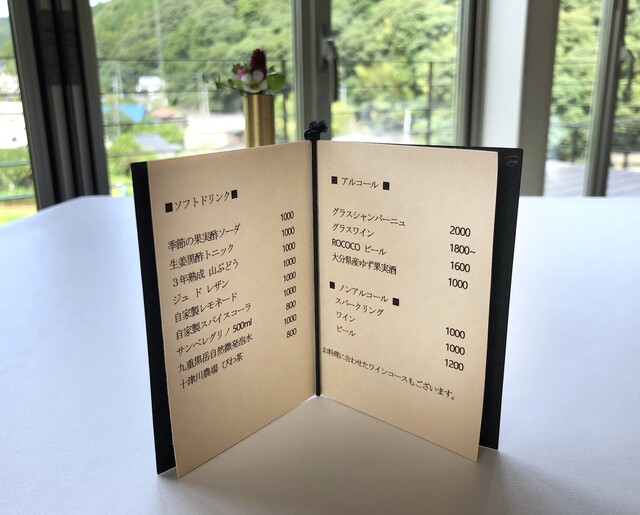 ■ソフトドリンク■
季節の果実酢ソーダ 1000
生姜黒酢トニック 1000
3年熟成 山ぶどう 1000
ジュ ド レザン 1000
自家製レモネード 1000
自家製スパイスコーラ 1000
サンペレグリノ 500ml 800
九重黒岳自然微発泡水 1000
十津川農場 びわ茶 800
■ アルコール ■
グラスシャンパーニュ 2000
グラスワイン 1800~
ROCOCO ビール 1600
大分県産ゆず果実酒 1000
■ ノンアルコール ■
スパークリング 1000
ワイン 1000
ビール 1200
お料理に合わせたワインコースもございます。